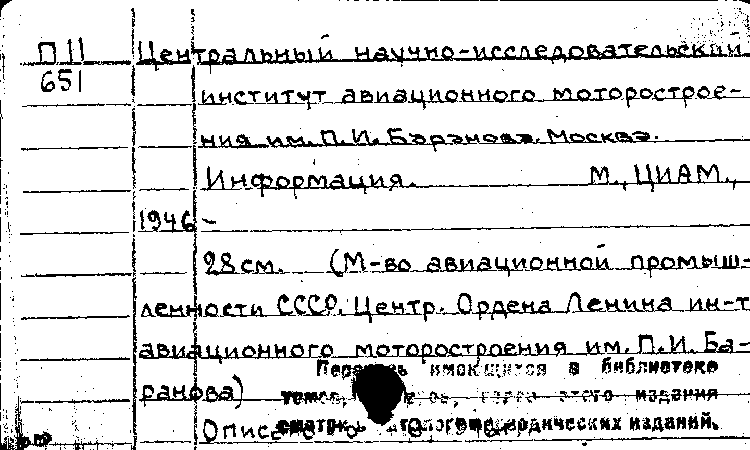 П11 Центральный научно-исследовательский
651 институт авиационного моторострое-
ния им. П.И. Баранова. Москва.
Информация. М., ЦИАМ.,
1946 –
28 см. (М-во авиационной промыш-
ленности СССР. Центр. Ордена Ленина ин-т
авиационного моторостроения им. П.И. Ба-
имеющихся в библиотеке
ранова) этого издания
изданий.